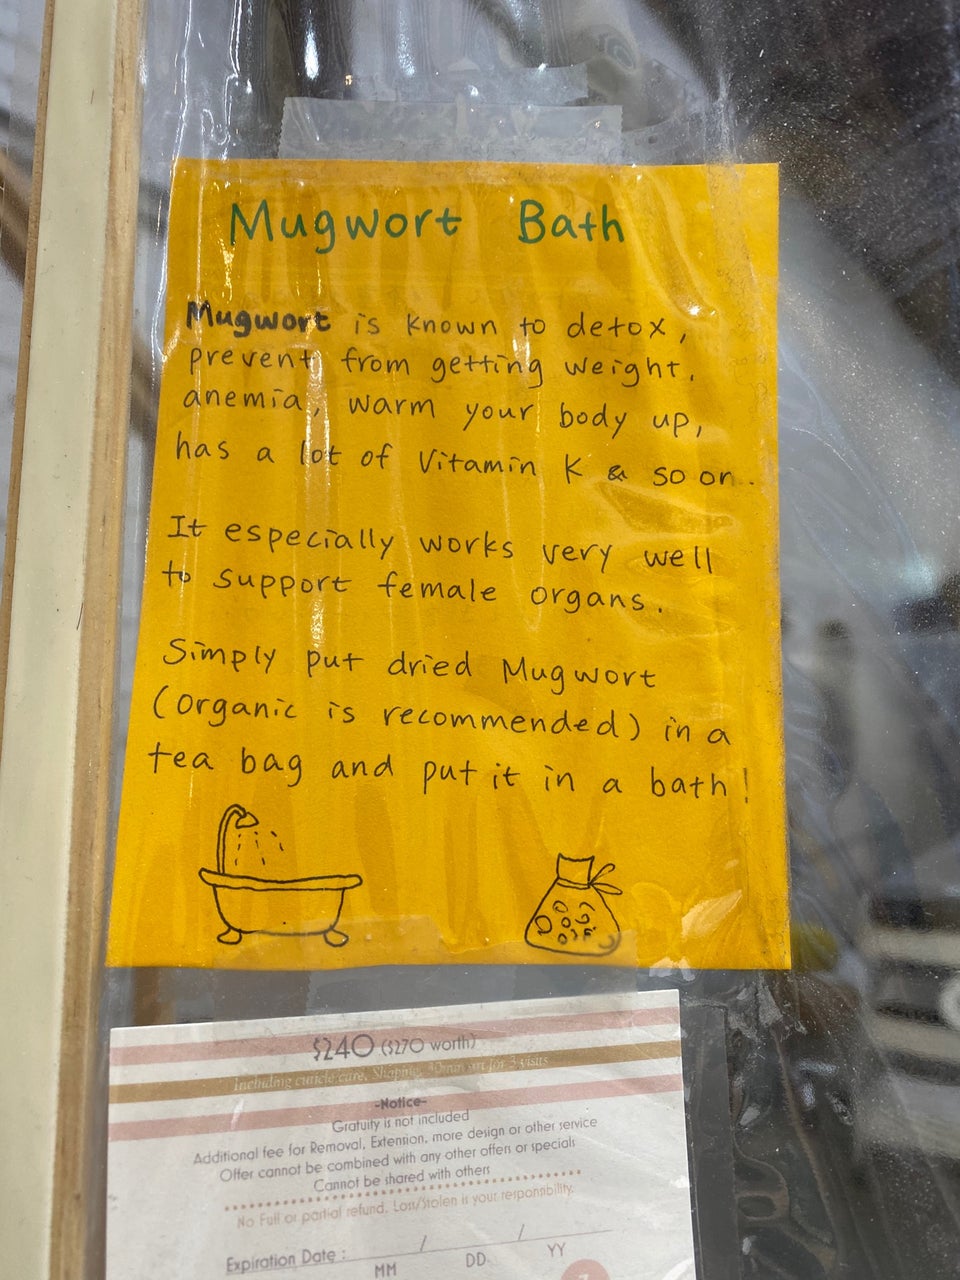 Mugwort Bath
Mugwort is known to detox,
prevent from getting weight,
anemia, warm your body up,
has a lot of Vitamin K & so on..
It especially works very well
to support female organs.
Simply put dried Mugwort
(organic is recommended) in a
tea bag and put it in a bath!
$240 ($270 worth)
Including cuticle care, Shaping, 30min art for 3 visits
-Notice-
Gratuity is not included
Additional fee for Removal, Extention, more design or other service
Offer cannot be combined with any other offers or specials
Cannot be shared with others
No Full or partial refund. Loss/Stolen is your responsibility.
Expiration Date : / /
MM DD YY